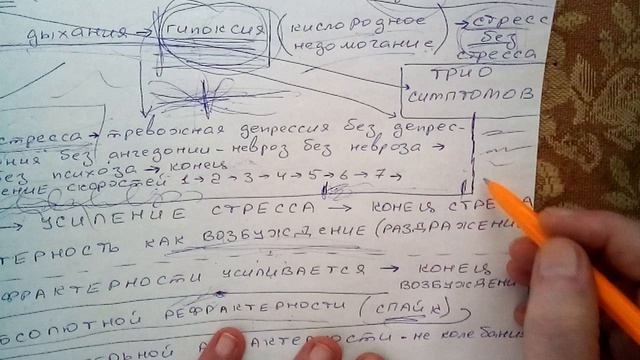 дыхания → гипоксия (кислородное недомогание) → стресс без стресса
трио симптомов
стресса → тревожная депрессия без депрес-
ния без ангедонии - невроз без невроза →
без психоза → конец
ение скоростей 1 → 2 → 3 → 4 → 5 → 6 → 7 →
→ усиление стресса → конец стре
терность как возбуждение (раздражени
фрактерности усиливается → конец возбуждени
осолютной рефрактерности (спайк)
- не колебани